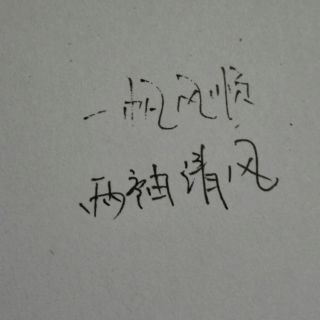 一帆风顺
两袖清风